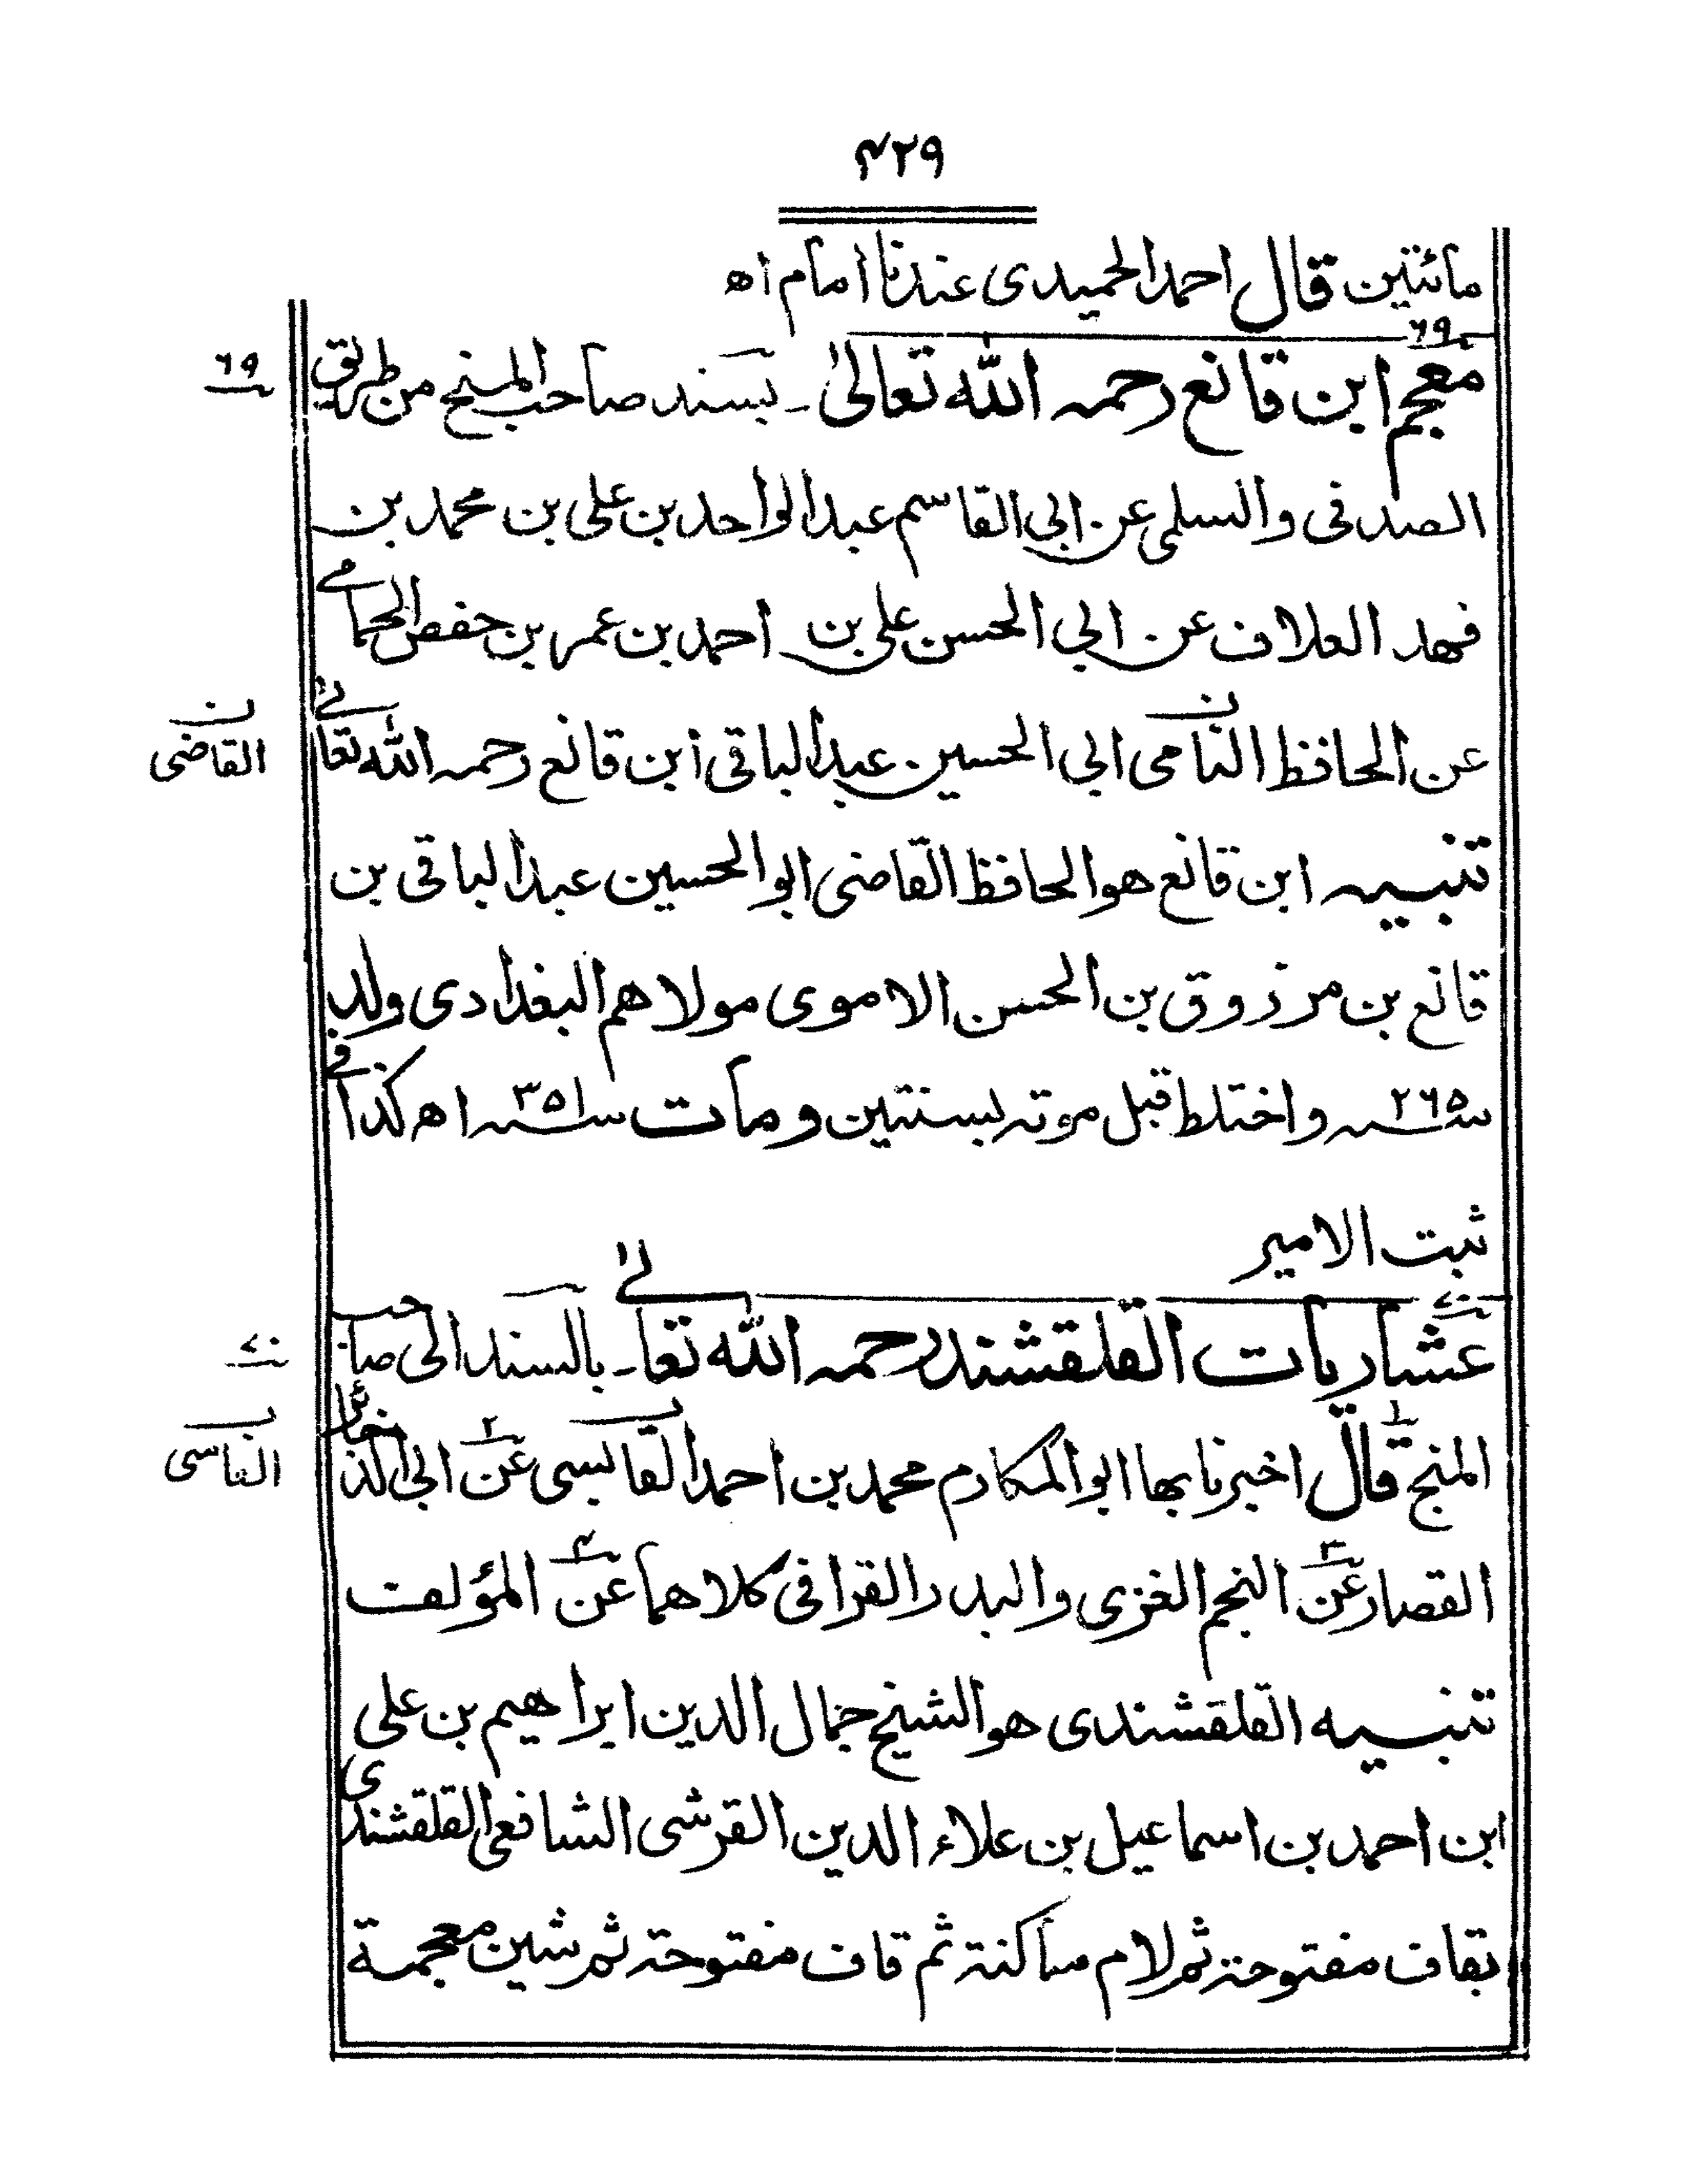 ۴۲۹
مائتين قال احمد الحميدى عندنا امام اھ
۶۹
معجم ابن قانع رحمہ اللہ تعالیٰ ـ بسند صاحب المنح من طریق
۶۹
الصدفى والسلمى عن ابي القاسم عبد الواحد بن على بن محمد بن
فهد العلاف عن ابي الحسن على بن احمد بن عمر بن حفص الحمامے
عن الحافظ النامى ابي الحسين عبد الباقى ابن قانع رحمہ اللہ تعالےٰ
ن
القاضى
تنبيہ ابن قانع هو الحافظ القاضى ابو الحسين عبد الباقى بن
قانع بن مرزوق بن الحسن الاموى مولاهم البغدادى ولد
سنہ ۲۶۵ واختلط قبل موتہ بسنتين ومات سنہ ۳۵۱ اھ كذا فے
ثبت الامير
۷۰
عشاريات القلقشند رحمہ اللہ تعالےٰ ـ بالسند الى صاحب
۷۰
المنح قال اخبرنا بها ابو المكارم محمد بن احمد القابسى عن ابى الذخائر
ب
الفاسى
القصار عن النجم الغزى والبدر القرافى كلاهما عن المؤلف
تنبيه القلقشندى هو الشيخ جمال الدين ابراهيم بن على
ابن احمد بن اسماعيل بن علاء الدين القرشى الشافعى القلقشندى
بقاف مفتوحة ثم لام ساكنة ثم قاف مفتوحة ثم شين معجمة